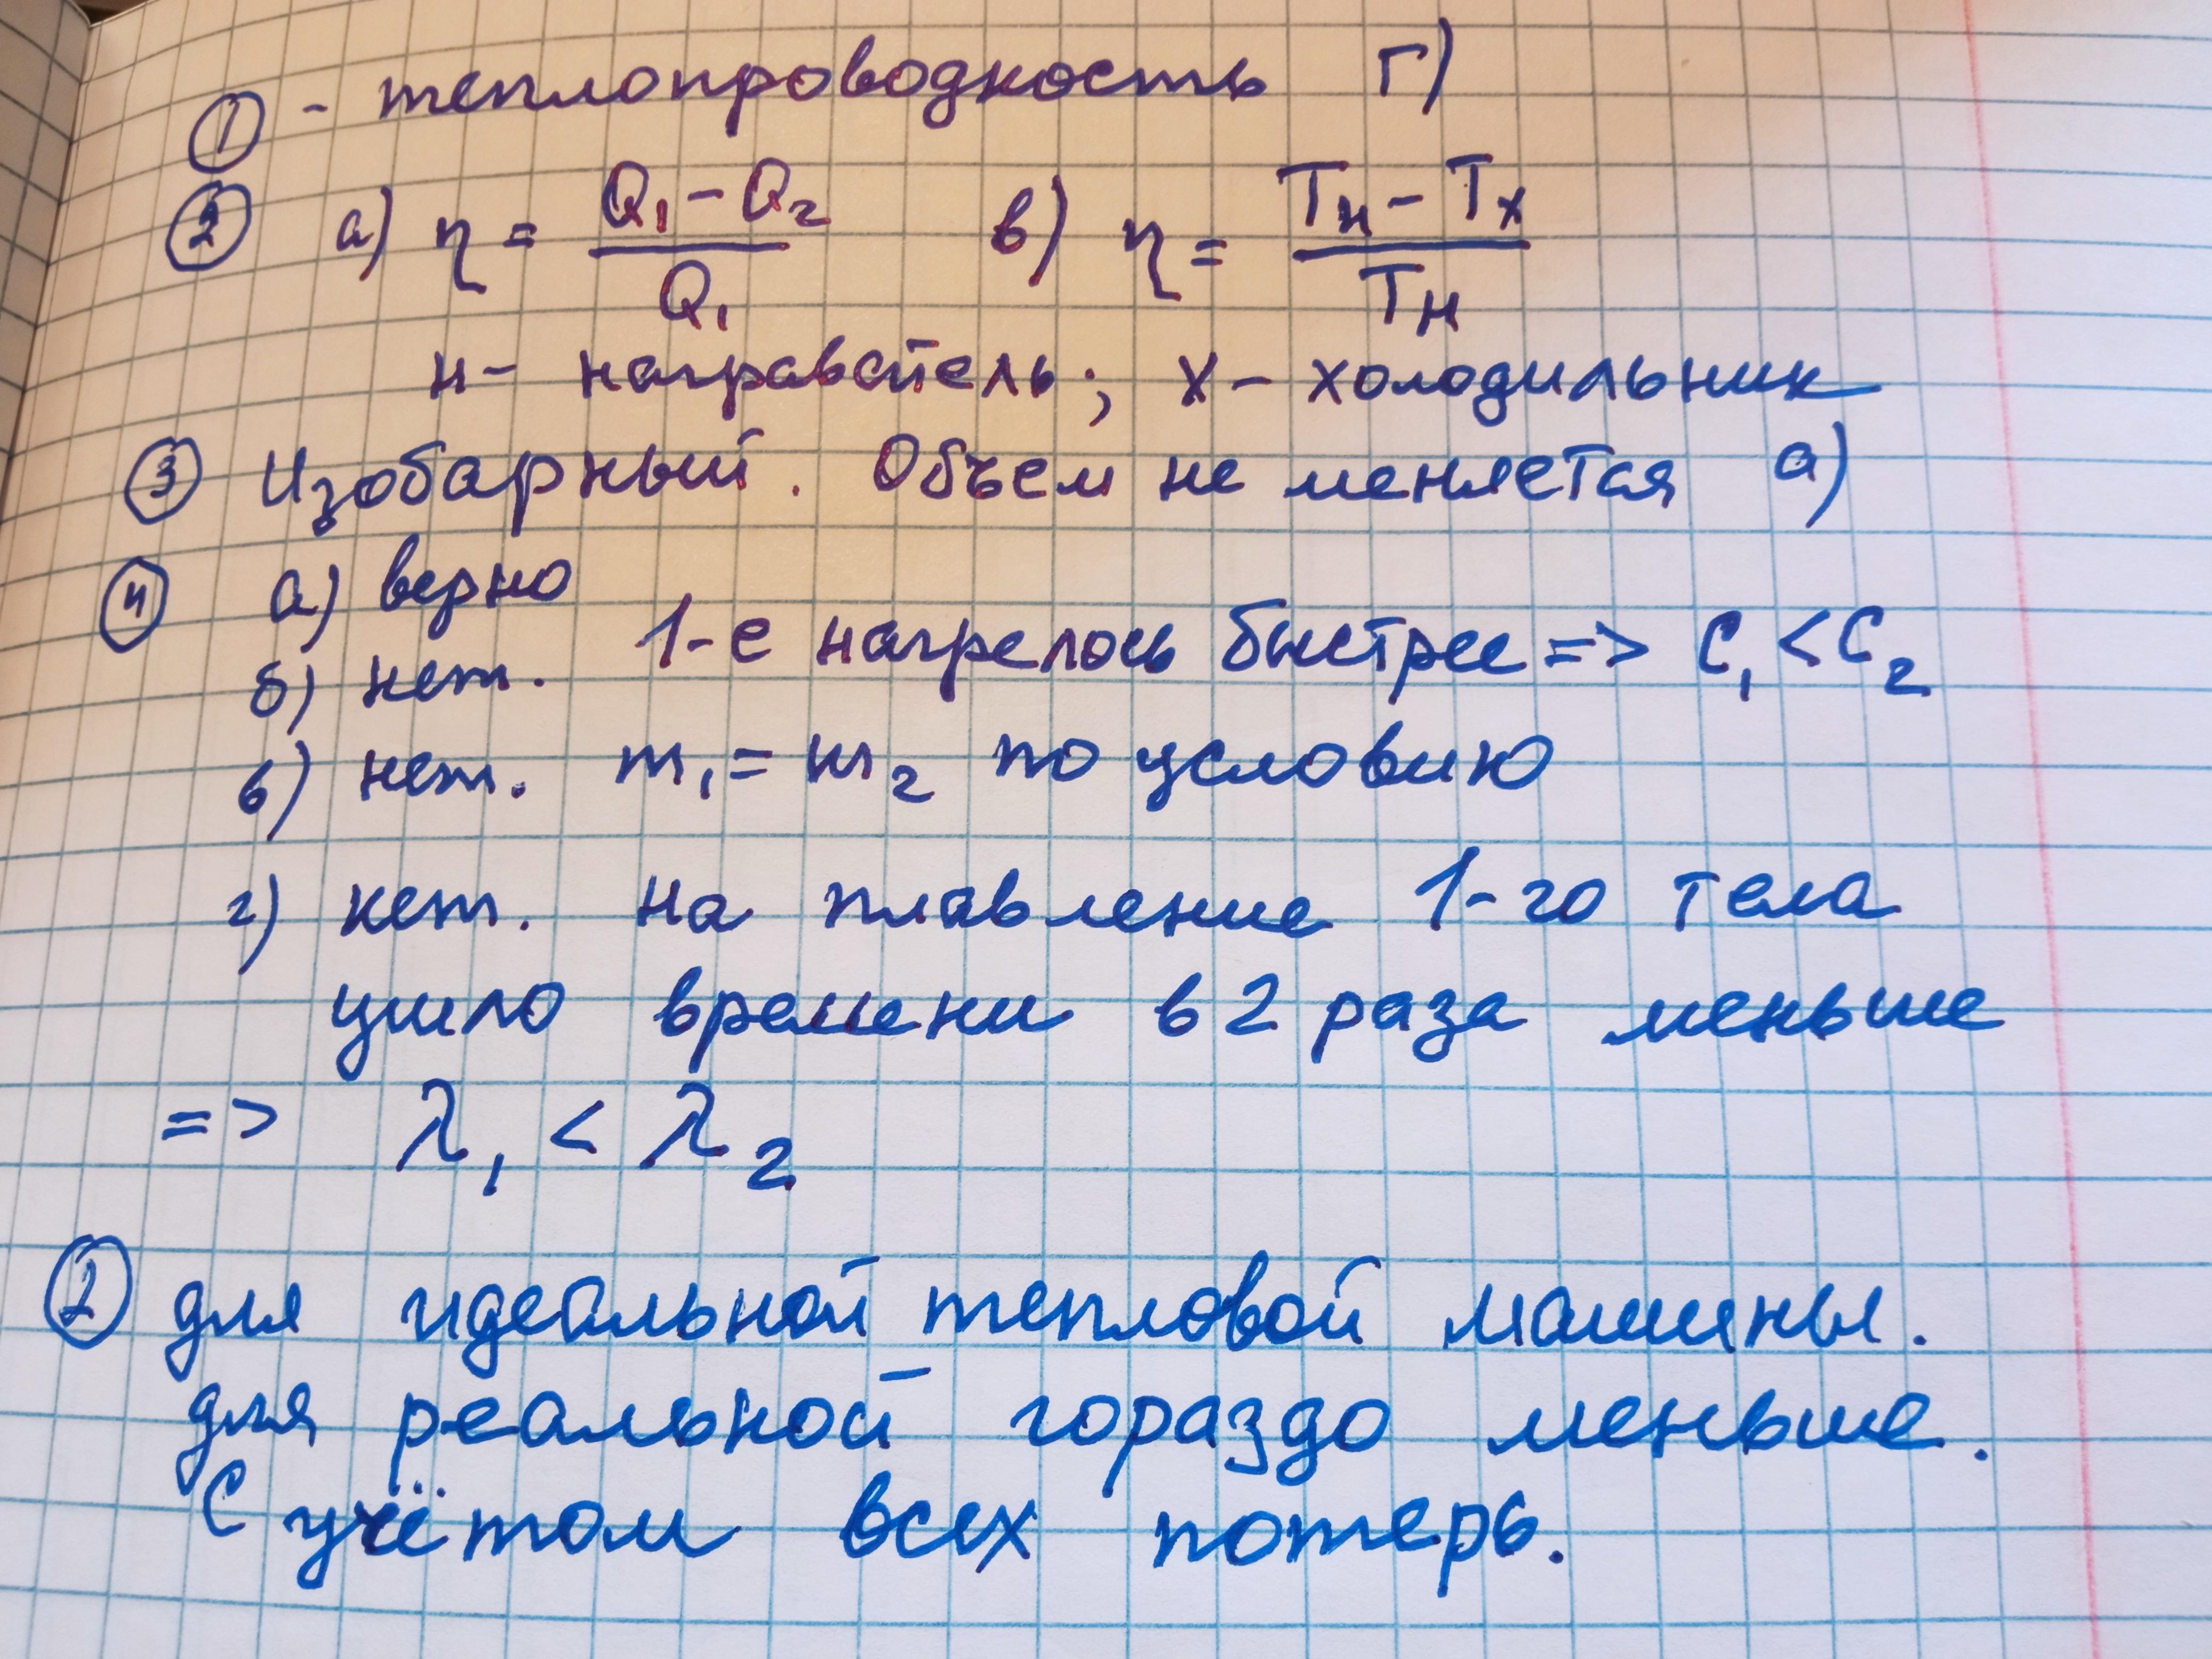 ① - теплопроводность г)
② а) η = (Q₁ - Q₂) / Q₁ в) η = (Tн - Tх) / Tн
н - награватель; х - холодильник
③ Изобарный. Объем не меняется а)
④ а) верно
б) нет. 1-е нагрелось быстрее => C₁ < C₂
в) нет. m₁ = m₂ по условию
г) нет. на плавление 1-го тела
ушло времени в 2 раза меньше
=> λ₁ < λ₂
② для идеальной тепловой машины.
для реальной гораздо меньше.
С учётом всех потерь.